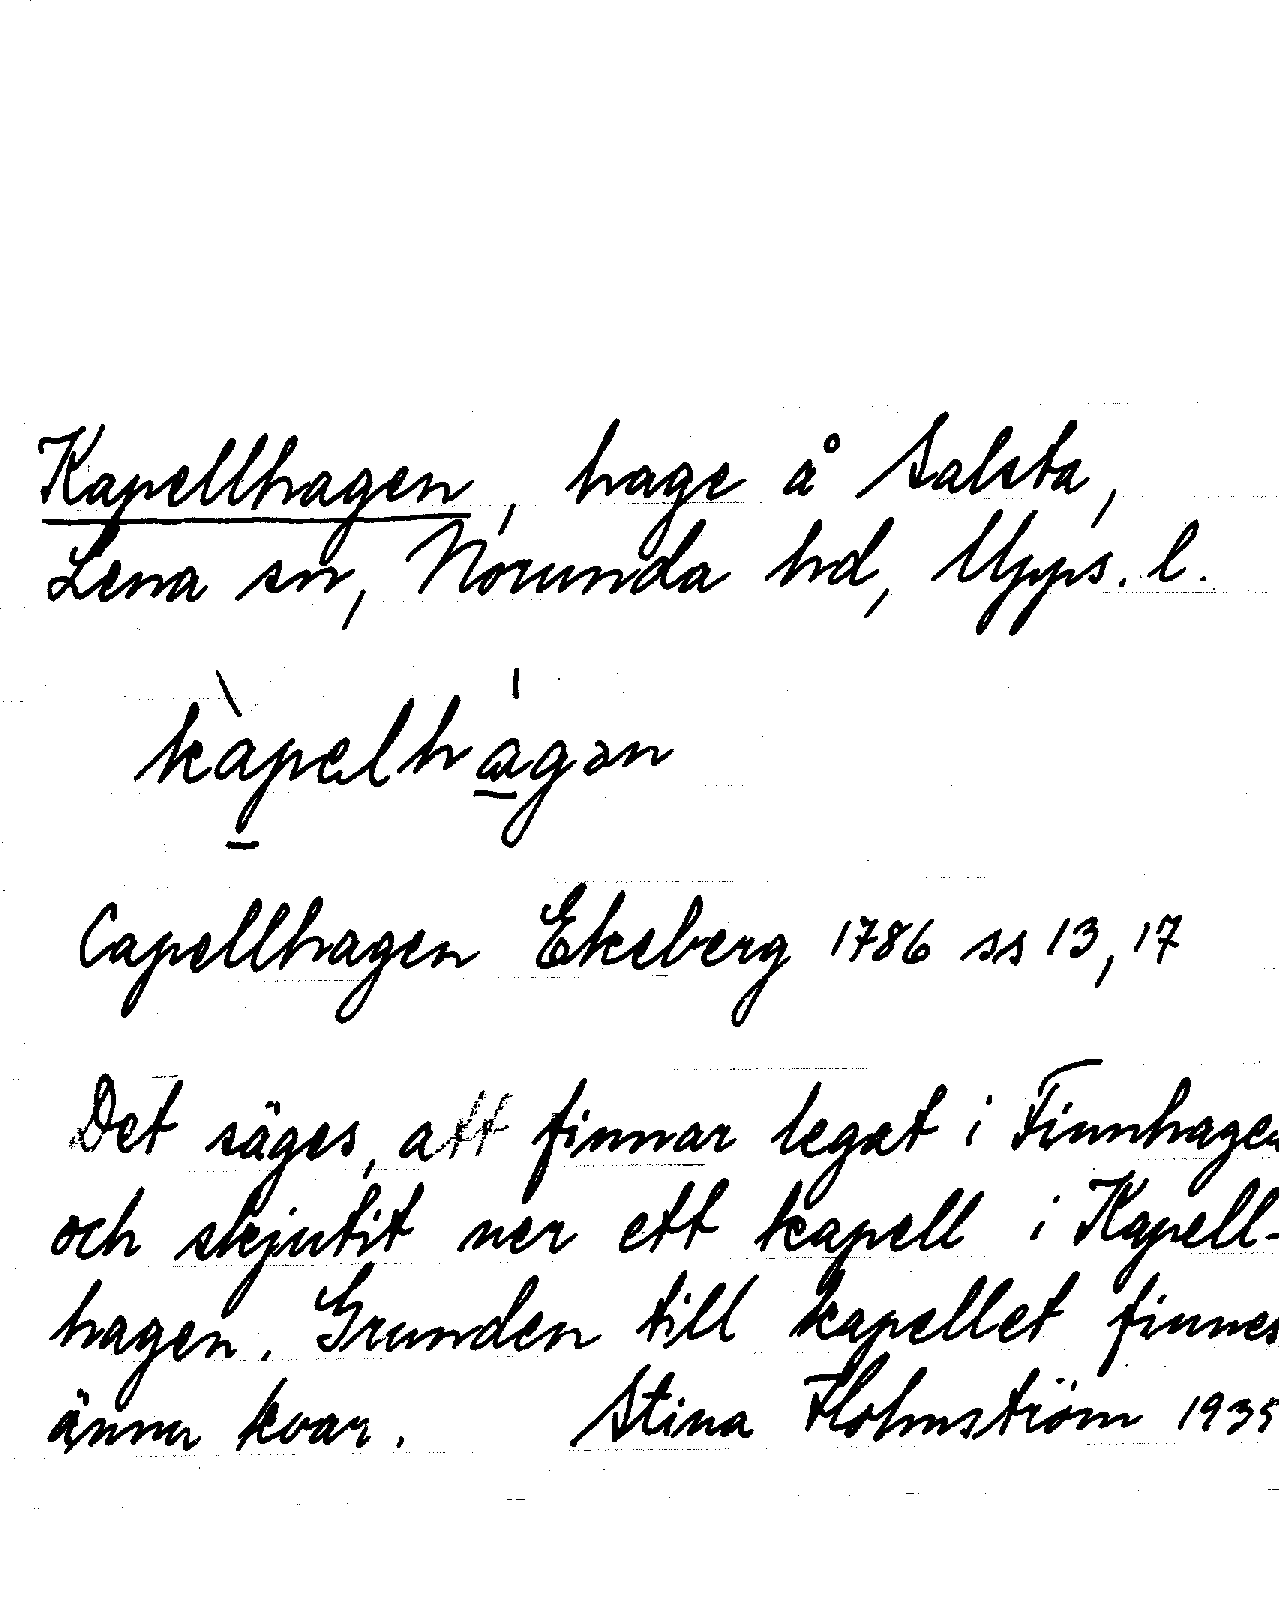 Kapellhagen, hage å Salsta,
Lena sn, Norunda hd, Upps. l.
kàpelhágən
Capellhagen Ekeberg 1786 ss 13, 17
Det säges, att finnar legat i Finnhagen
och skjutit ner ett kapell i Kapell-
hagen. Grunden till kapellet finnes
ännu kvar. Stina Holmström 1935